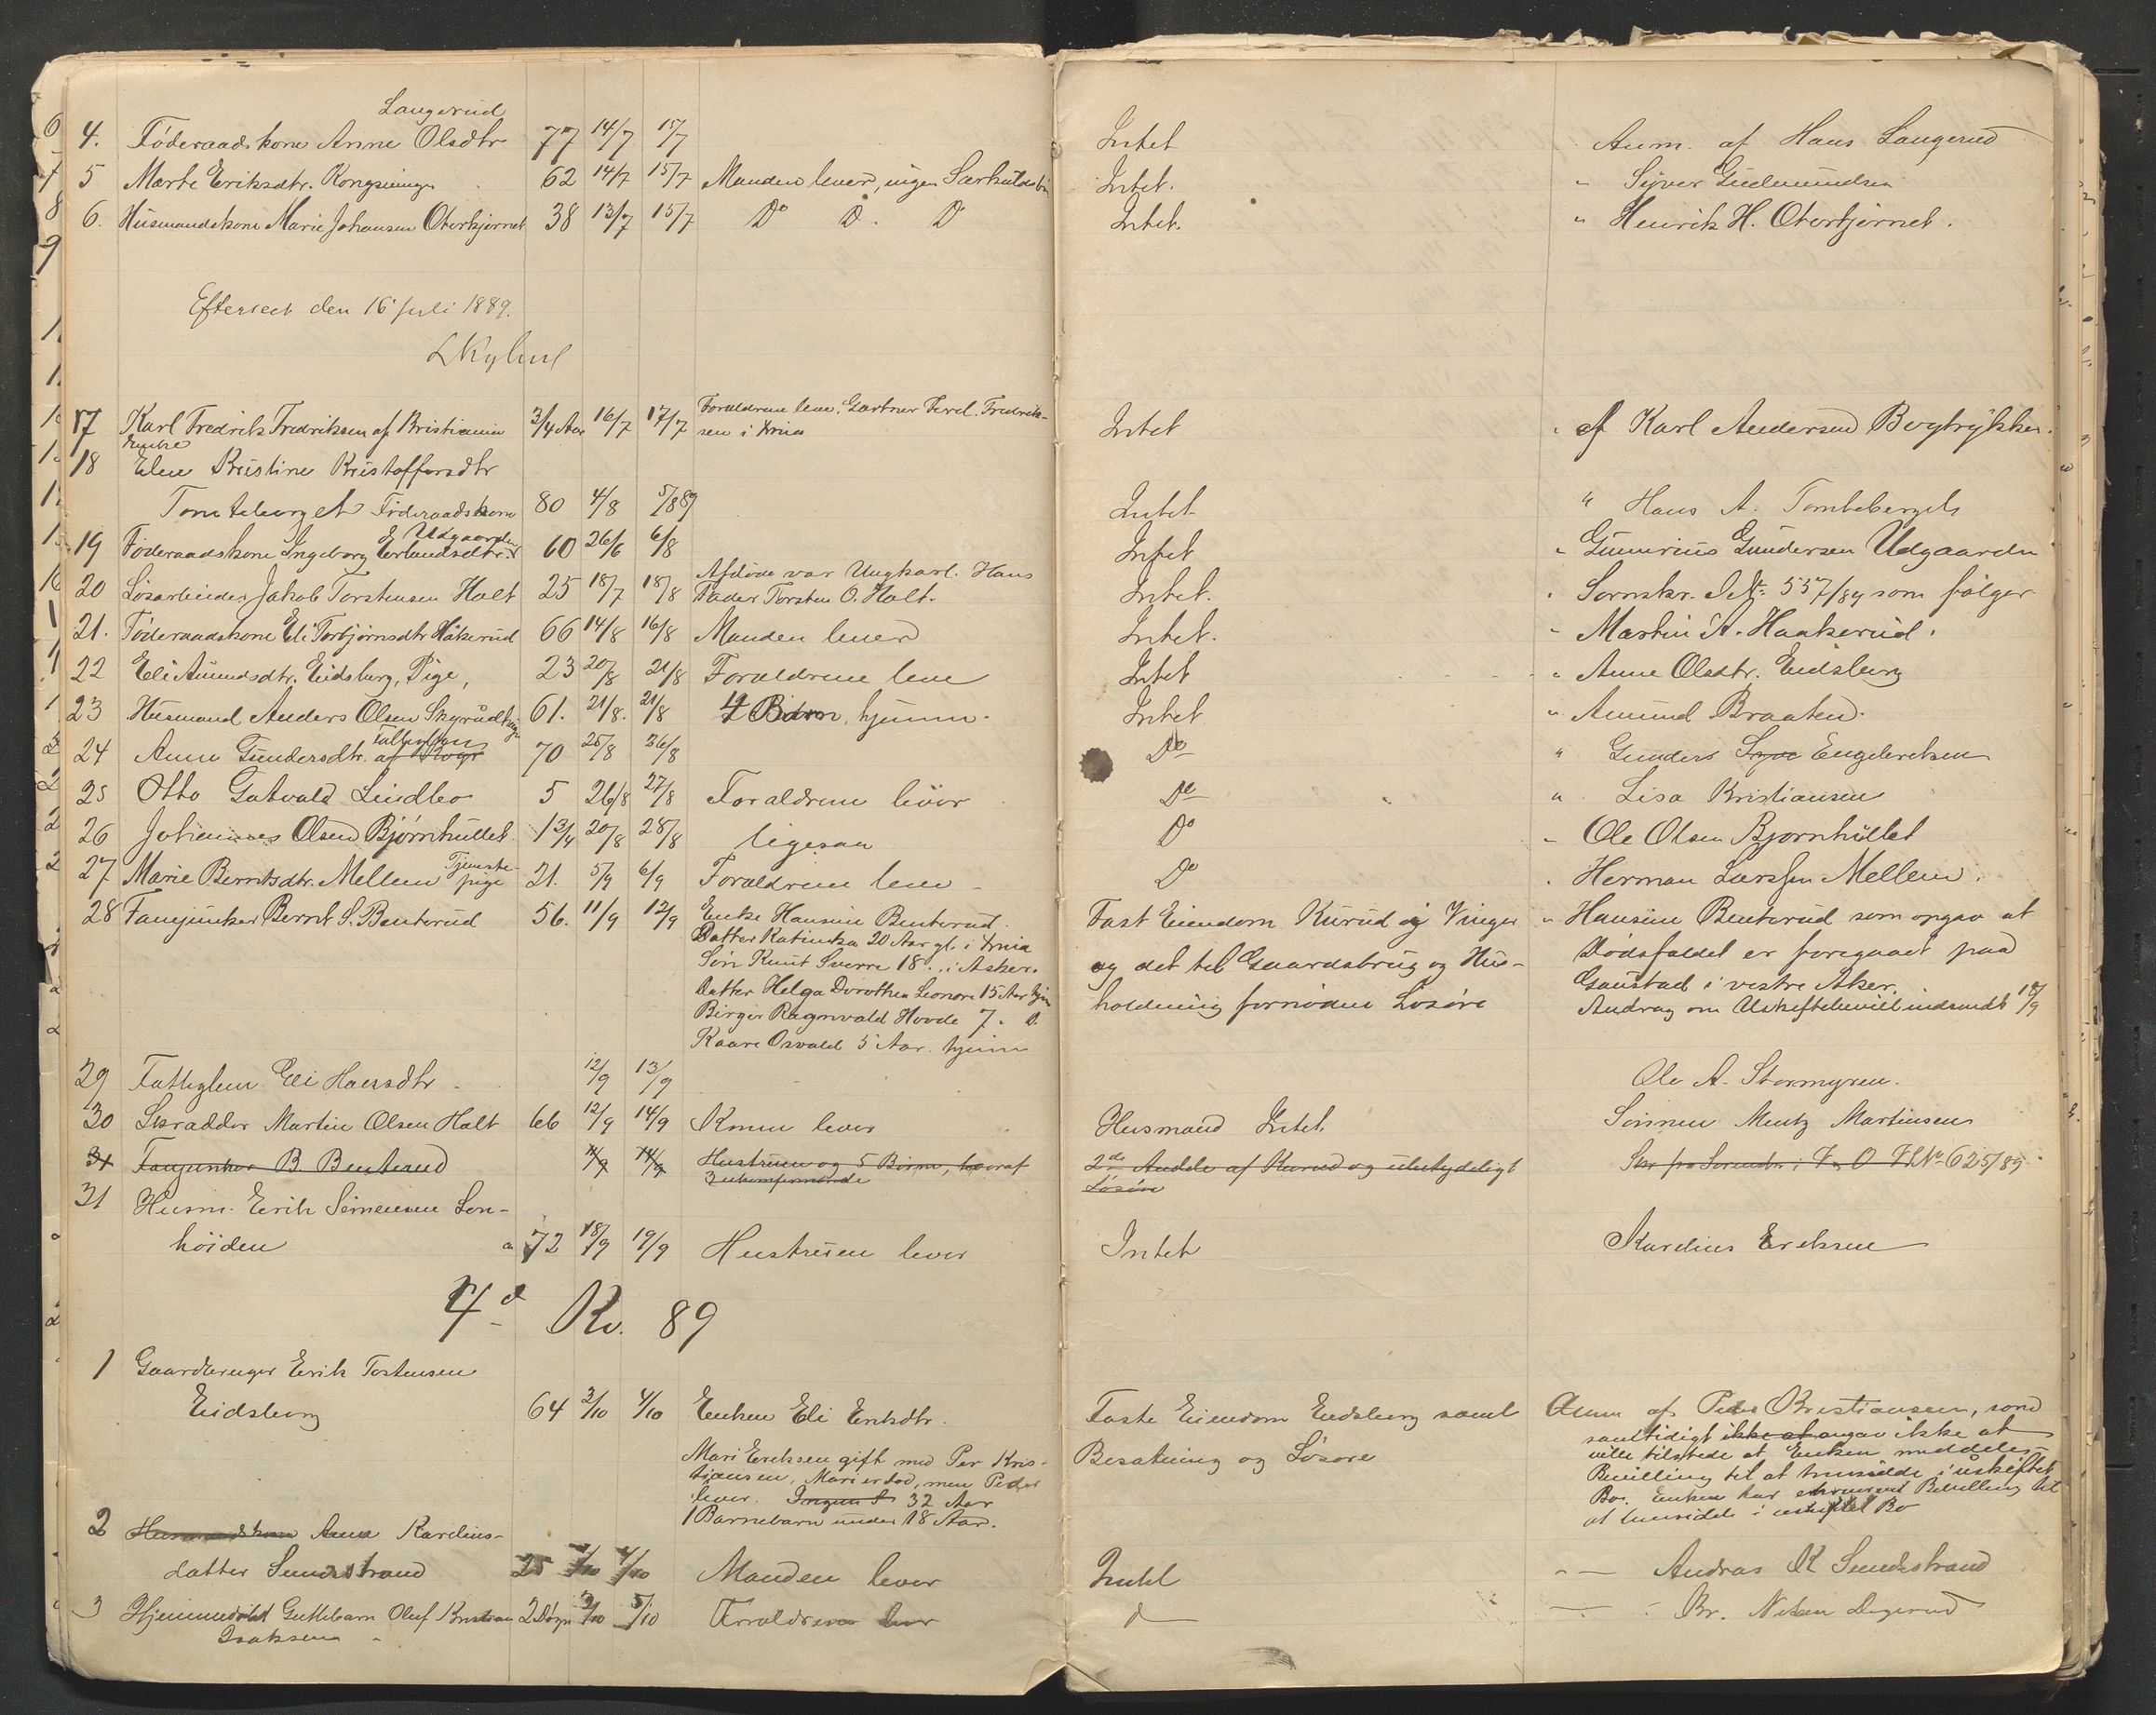 Langerud
4. Föderaadskone Anne Olsdtr 77 14/7 15/7 Intet Anm. af Hans Langerud
5 Marte Eriksdtr. Kongsvinger 62 14/7 15/7 Manden lever, ingen Særkuldsbørn Intet. " Syver Gudmundsen
6. Husmandskone Marie Johansen Oterkjernet 38 13/7 15/7 Do D. D Intet. " Henrik H. Oterkjernet.
Efterseet den 16 Juli 1889.
17 Karl Fredrik Fredriksen af Kristiania 3/4 Aar 16/7 17/7 Forældrene lever, Gartner Ferd. Fredrik-
sen i Xnia Intet " af Karl Andersen Bogtrykker.
Enke
18 Elen Kristine Kristoffersdtr
Tomteberget Föderaadskone 80 4/8 5/8 89 Intet " Hans A. Tomteberget
E Udgaarden
19 Föderaadskone Ingeborg Erlandsdtr. 60 26/6 6/8 Intet " Gunerius Gundersen Udgaarden
Afdøde var Ungkarl. Hans
20 Løsarbeider Jakob Torstensen Holt 25 18/7 18/8 Fader Torsten O. Holt. Intet. " Sornskr. No 557/89 som følger
21. Föderaadskone Eli Torbjørnsdtr Håkerud 66 14/8 16/8 Manden lever Intet. " Martin A. Haakerud.
22 Eli Amundsdtr. Eidsberg, Pige, 23 20/8 21/8 Forældrene leve Intet " Anne Olsdtr. Eidsberg
23 Husmand Anders Olsen Skyrudhaugen 61. 21/8. 21/8 4 Børn, hjemme. Intet " Amund Braaten.
24 Anne Gundersdtr. af 70 25/8 26/8 Do " Gunders Engebretsen
25 Otto Gotvald Lindbo 5 26/8 27/8 Forældrene lever Do " Lisa Kristiansen
26 Johannes Olsen Bjørnhullet 1 3/4 20/8 28/8 ligesaa Do " Ole Olsen Bjørnhullet
27. Marie Berntsdtr. Mellem Tjeneste-
pige 21. 5/9 6/9 Forældrene leve Do " Herman Larssen Mellem.
28 Fanejunker Bernt S. Benterud 56. 11/9 12/9 Enke Hansine Benterud. Fast Eiendom Kurud i Vinger " Hansine Benterud som opgav at
Datter Katinka 20 Aar gl. i Xnia
Søn Knut Sverre 18 " i Asker. og det til Gaardsbrug og Hus- Dødsfaldet er foregaaet paa
Datter Helga Dorothea Leonore 15 Aar hjem Gaustad i vestre Aker.
Birger Ragnvald Hovde 7. D. holdning fornødne Løsøre Andrag om Uskiftebevill indsendt 18/9
Kaare Osvald 5 Aar. hjemme
29 Fattiglem Eli Hansdtr 12/9 13/9 Ole A. Stormyren.
30 Skrædder Martin Olsen Holt 66 12/9 14/9 Konen lever Husmand Intet. Sønnen Mentz Martinsen
31 Fanejunker B. Benterud 11/9 14/9 Hustruen og 5 Børn, hvoraf 2de Andele af Kurud og ubetydeligt Skr fra Sorenskr. i No 625/89
3 ukonfirmerede Løsøre
31 Husm. Erik Simensen Lon-
høiden a 72 18/9 19/9 Hustruen lever Intet Karelius Eriksen
4d Kv. 89
1 Gaardbruger Erik Tostensen
Eidsberg 64 3/10 4/10 Enken Eli Eriksdtr. Faste Eiendom Eidsberg samt Anm af Peder Kristiansen, som
samtidigt ikke at angav ikke at
Mari Eriksen gift med Per Kris- Besætning og Løsøre ville tilstede at Enken meddeles
tiansen, Mari er død, men Peder Bevilling til at hensidde i uskiftet
lever. 32 Aar Bo. Enken har erhvervet Bevilling til
1 Barnebarn under 18 Aar. at hensidde i uskiftet Bo
2 Husmandskone Anne Karelius-
datter Sundstrand 25 4/10 Manden lever Intet " — Andras K Sundstrand
3 Hjemmedøbt Guttebarn Oluf Kristian 2 Døgn 3/10 5/10 Forældrene lever d — Kr. Nilsen
Isaksen